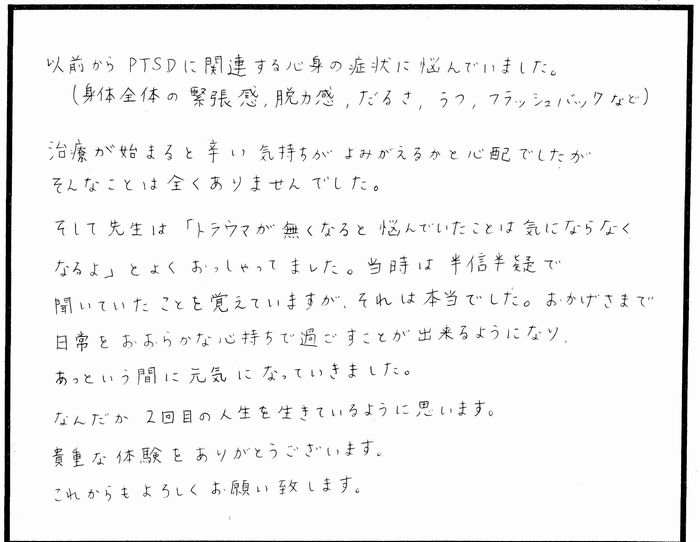 以前からPTSDに関連する心身の症状に悩んでいました。
(身体全体の緊張感,脱力感,だるさ,うつ,フラッシュバックなど)
治療が始まると辛い気持ちがよみがえるかと心配でしたが
そんなことは全くありませんでした。
そして先生は「トラウマが無くなると悩んでいたことは気にならなく
なるよ」とよくおっしゃってました。当時は半信半疑で
聞いていたことを覚えていますが、それは本当でした。おかげさまで
日常をおおらかな心持ちで過ごすことが出来るようになり、
あっという間に元気になっていきました。
なんだか2回目の人生を生きているように思います。
貴重な体験をありがとうございます。
これからもよろしくお願い致します。